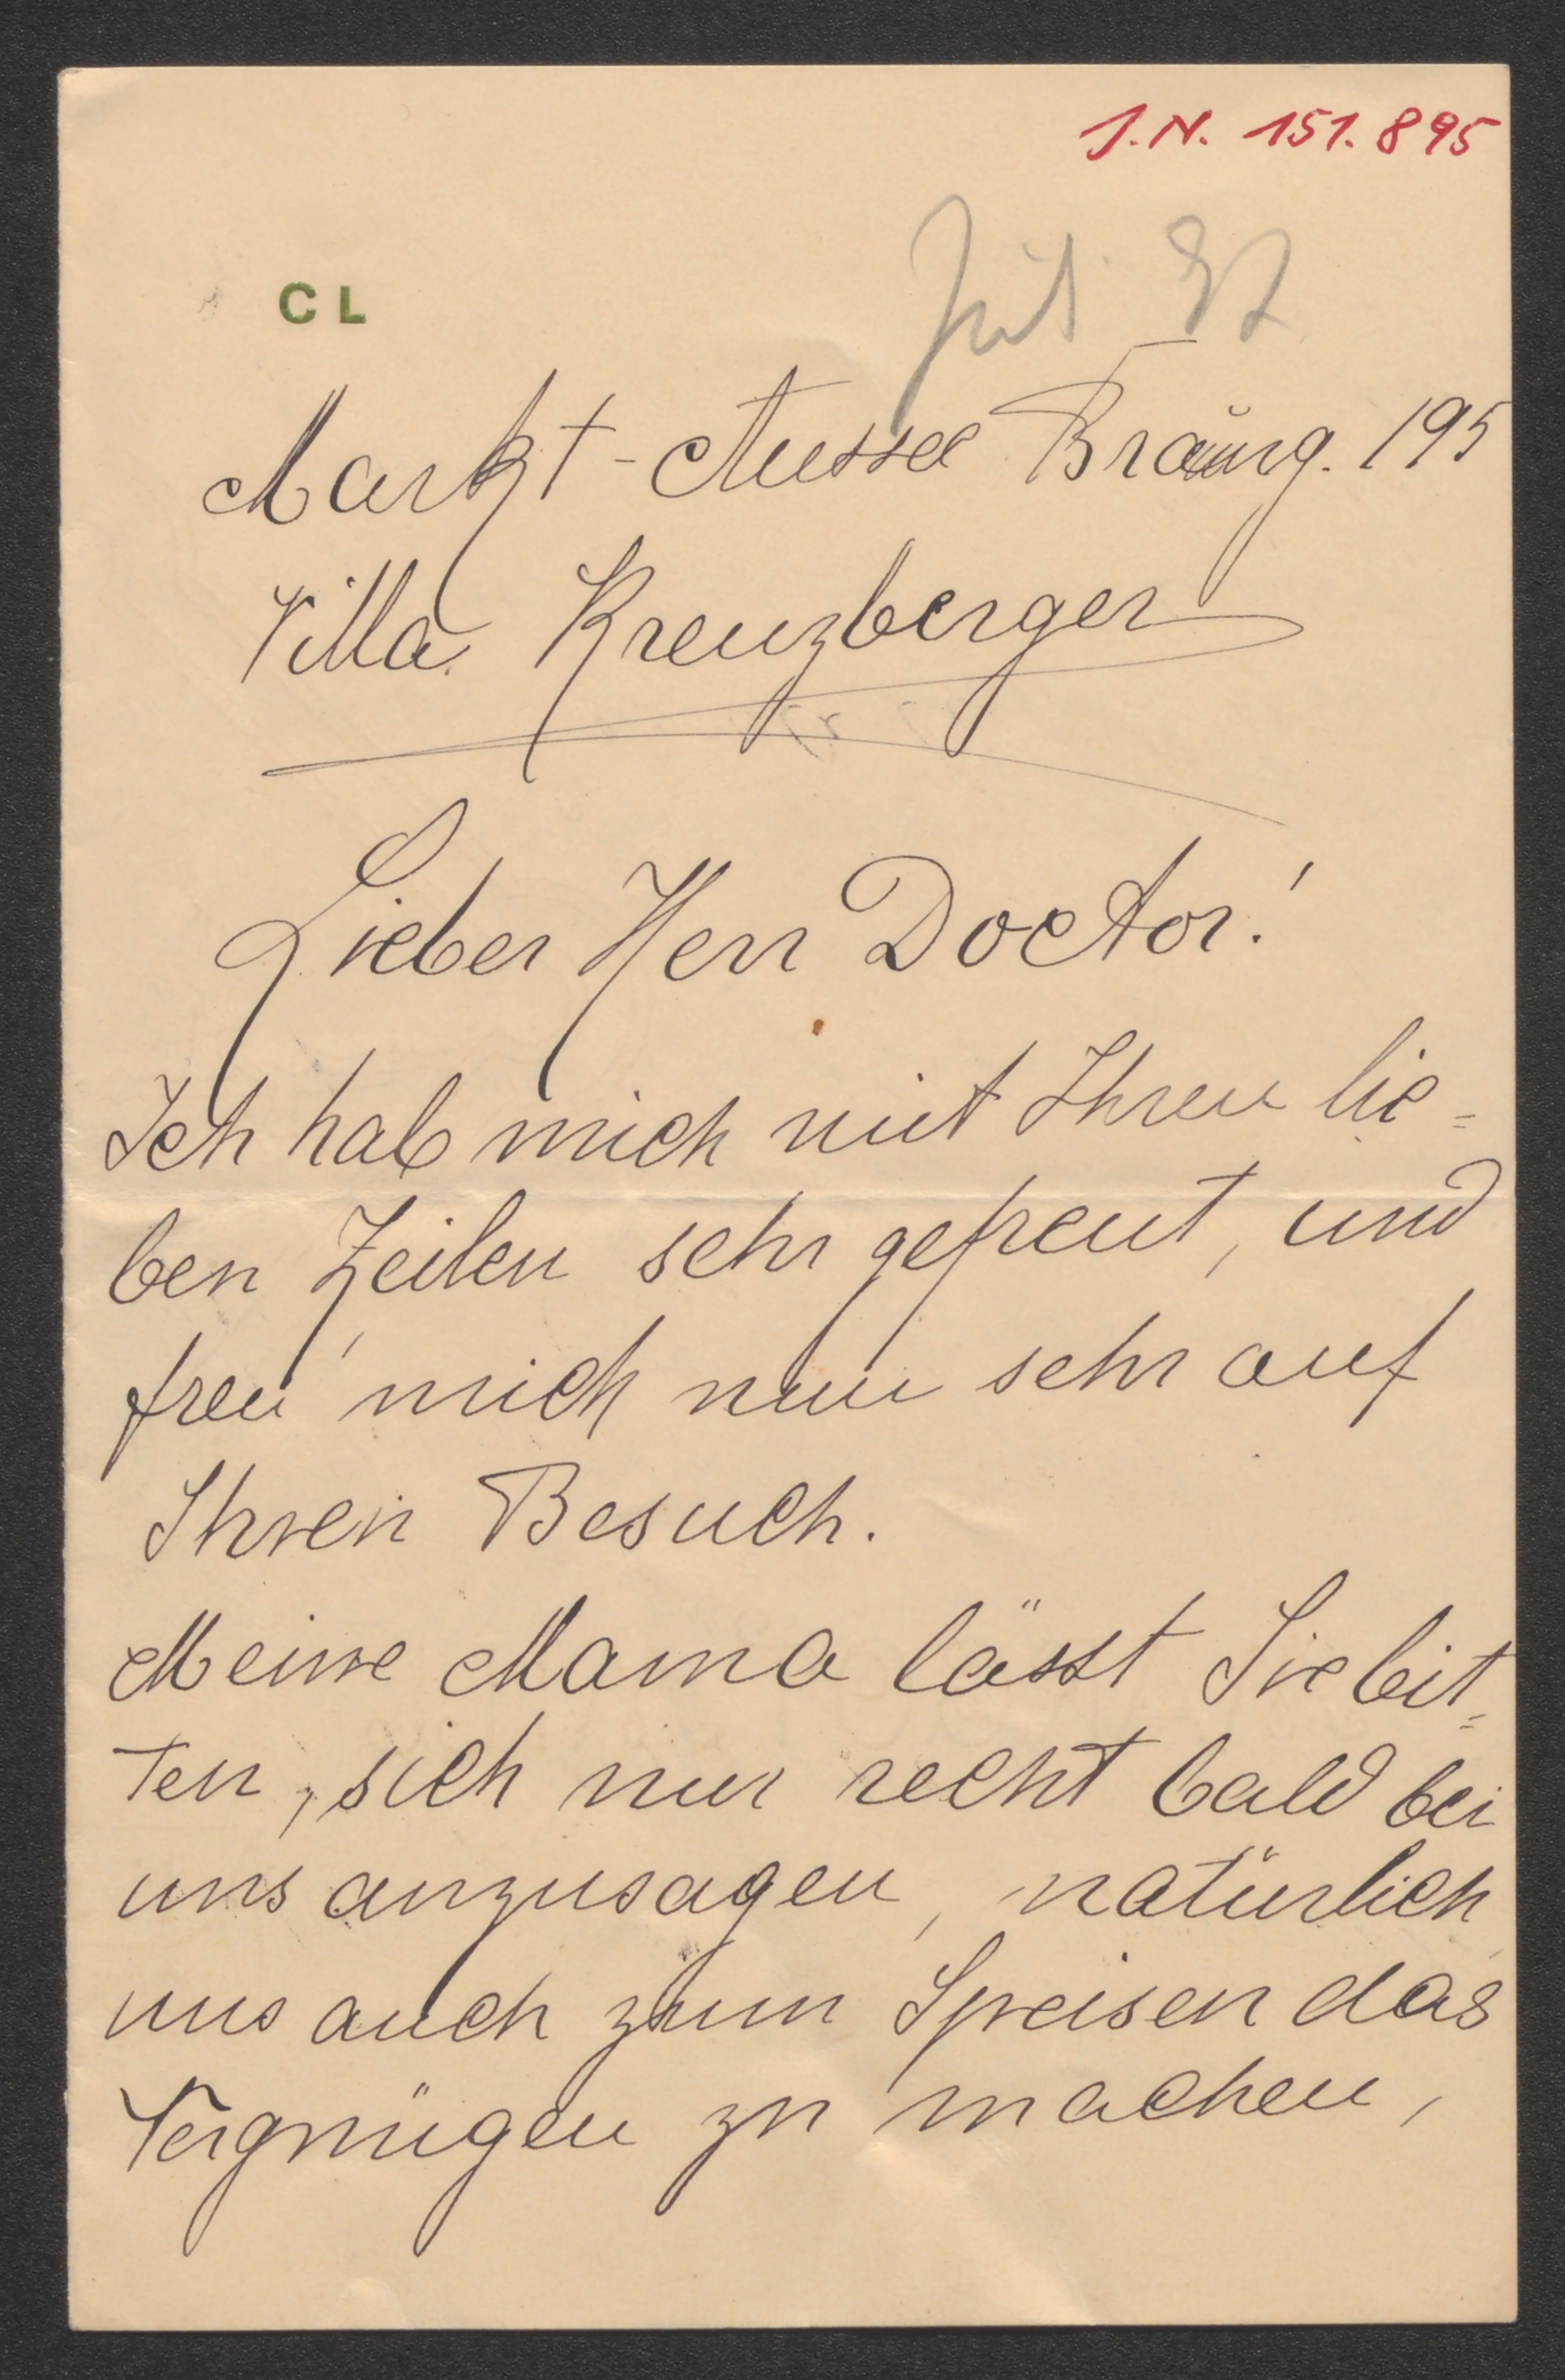 J.N. 151.895
CL
Juli 97
Markt-Aussee Bräug. 195
Villa Kreuzberger
Lieber Herr Doctor!
Ich hab mich mit Ihren lie=
ben Zeilen sehr gefreut, und
freu' mich nun sehr auf
Ihren Besuch.
Meine Mama lässt Sie bit=
ten, sich nur recht bald bei
uns anzusagen, natürlich
uns auch zum Speisen das
Vergnügen zu machen,